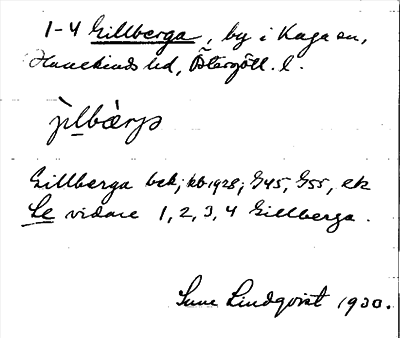 1-4 Gillberga, by i Kaga sn,
Hanekinds hd, Östergötl. l.
jìlbàrjɑ
Gillberga bek; kb 1928; G45, G55, ek
Se vidare 1, 2, 3, 4 Gillberga.
Sune Lindqvist 1930.